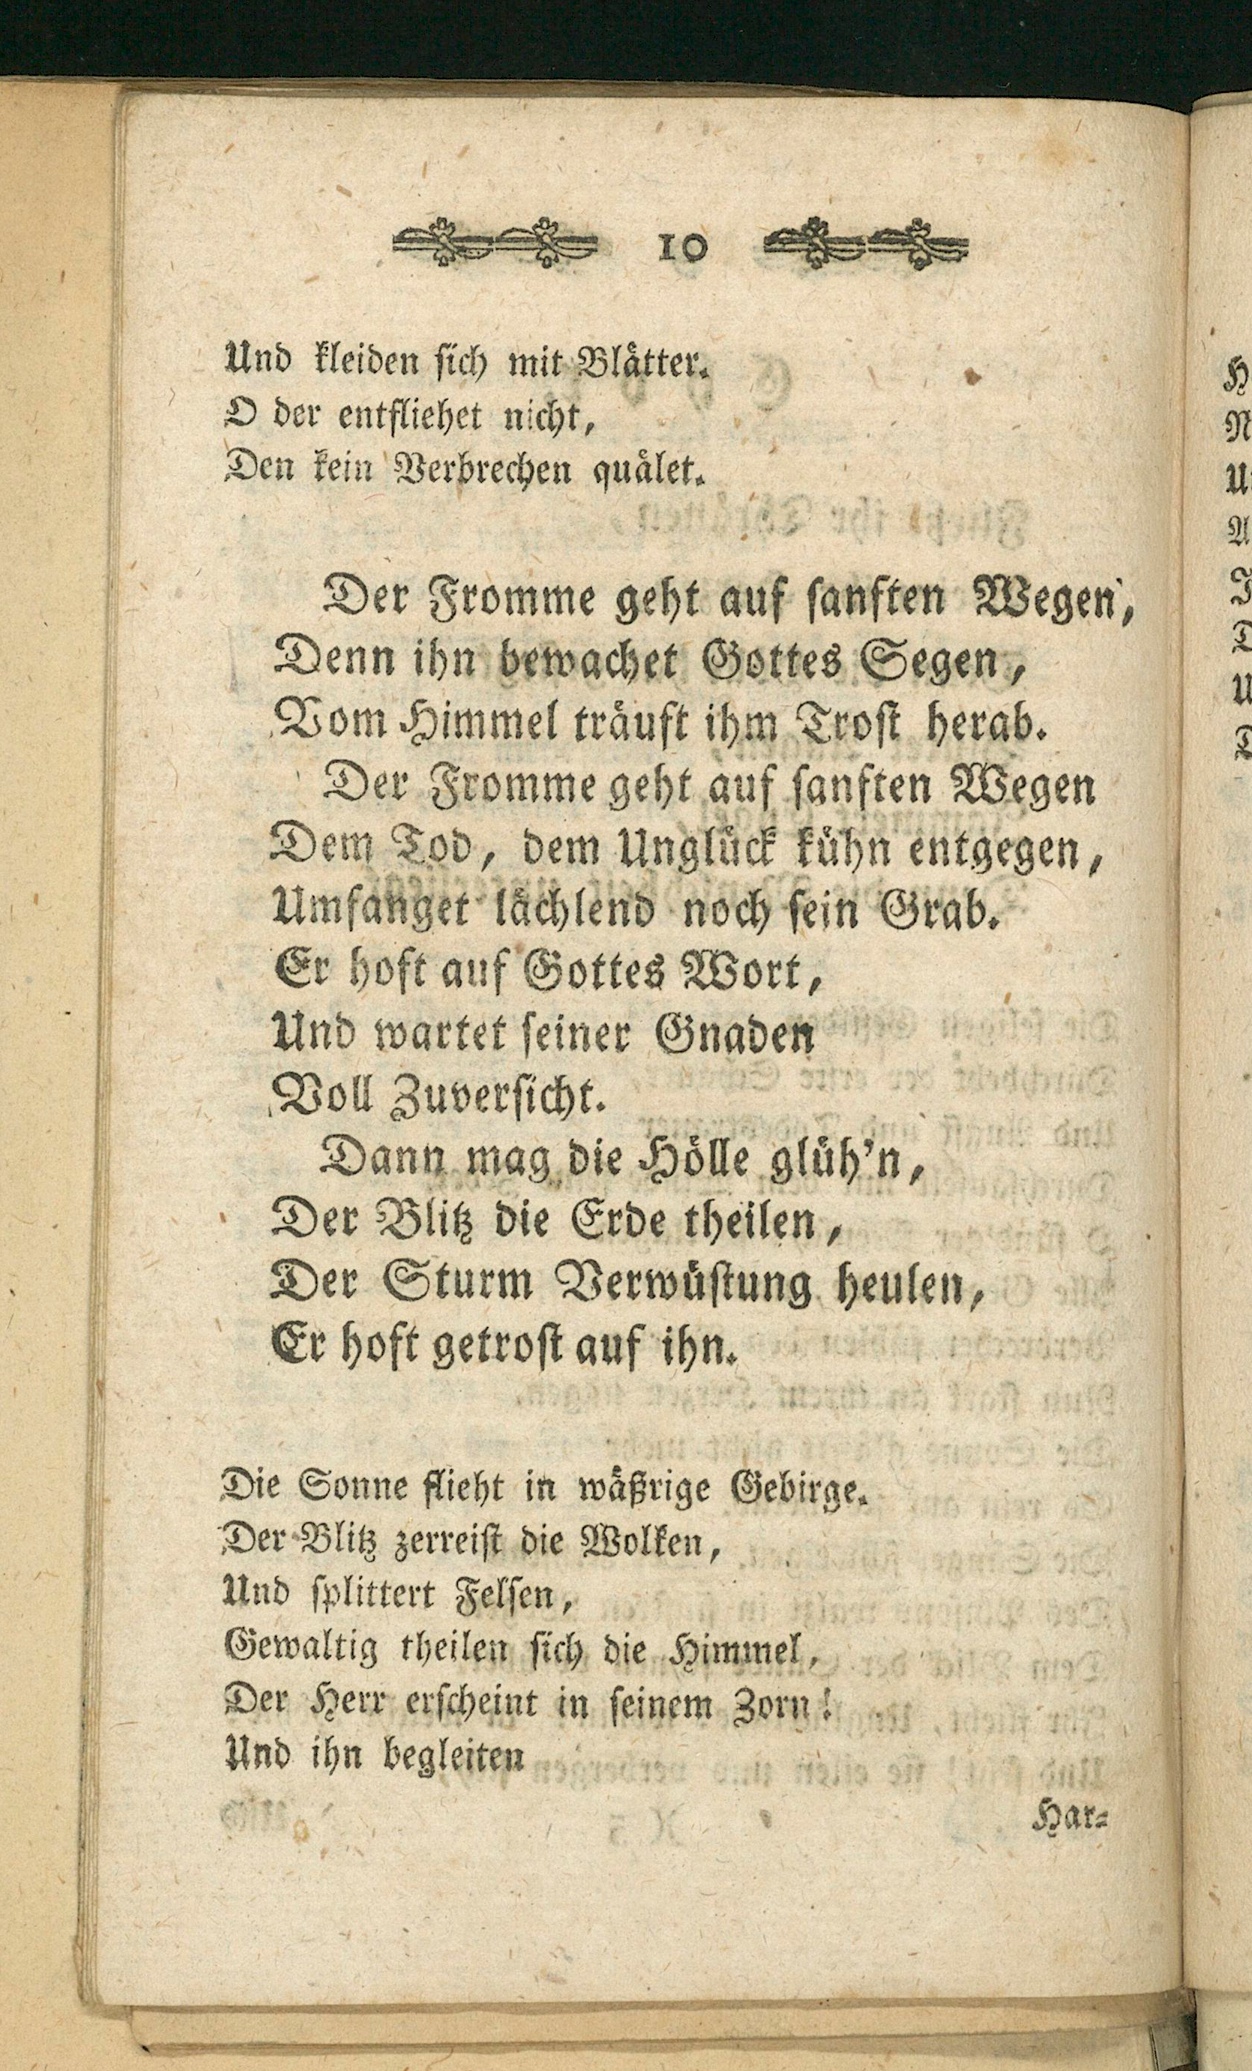 10
Und kleiden sich mit Blätter.
O der entfliehet nicht,
Den kein Verbrechen quälet.
Der Fromme geht auf sanften Wegen,
Denn ihn bewachet Gottes Segen,
Vom Himmel träuft ihm Trost herab.
Der Fromme geht auf sanften Wegen
Dem Tod, dem Unglück kühn entgegen,
Umfanget lächlend noch sein Grab.
Er hoft auf Gottes Wort,
Und wartet seiner Gnaden
Voll Zuversicht.
Dann mag die Hölle glüh'n,
Der Blitz die Erde theilen,
Der Sturm Verwüstung heulen,
Er hoft getrost auf ihn.
Die Sonne flieht in wäßrige Gebirge.
Der Blitz zerreist die Wolken,
Und splittert Felsen,
Gewaltig theilen sich die Himmel,
Der Herr erscheint in seinem Zorn!
Und ihn begleiten
Har-